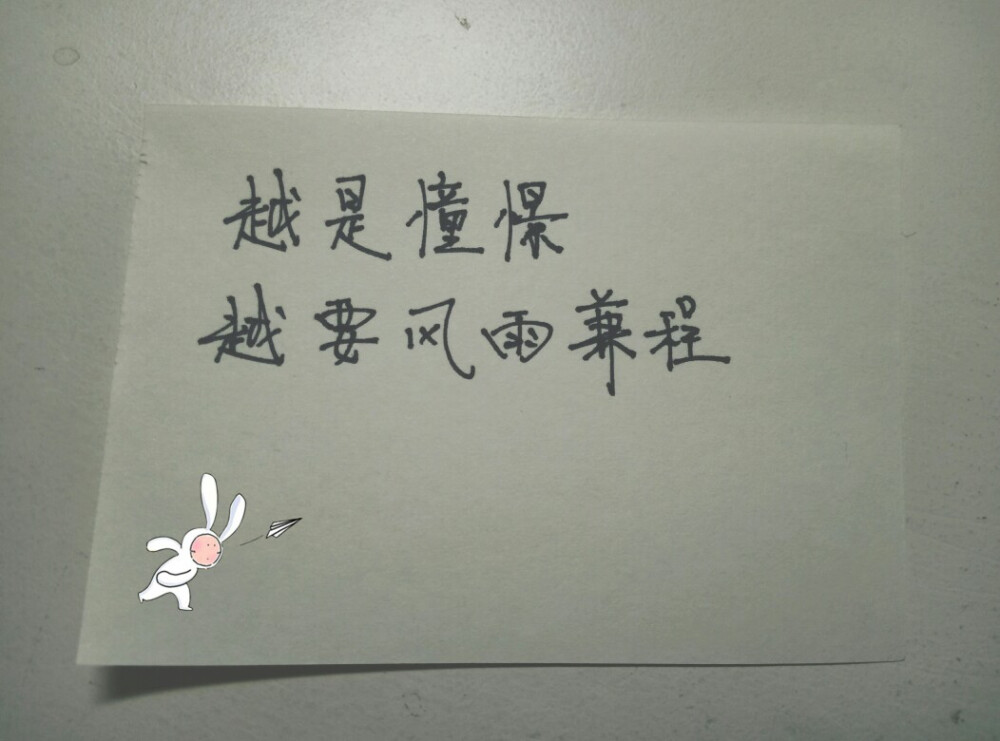 越是憧憬
越要风雨兼程